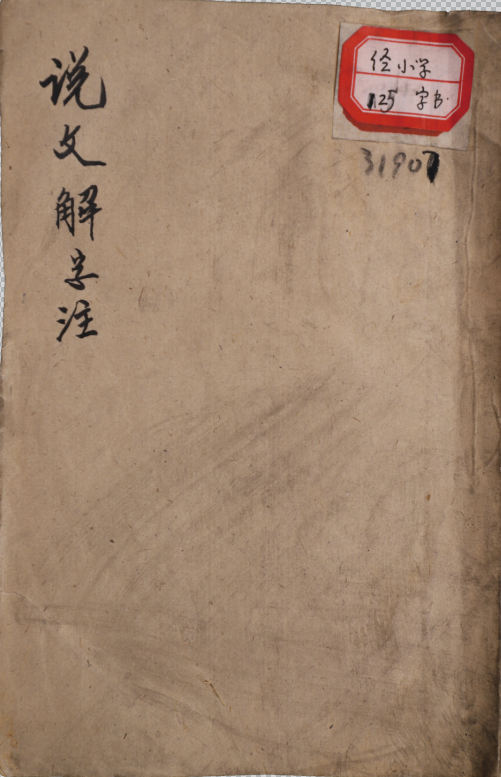 说文解字注
径小学
125 字书
31907